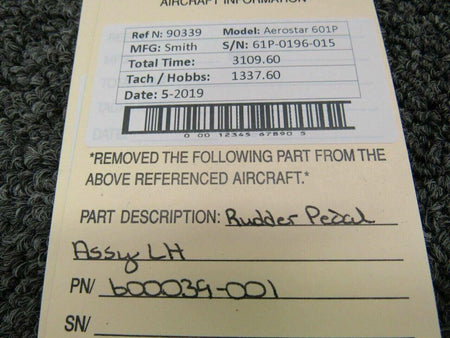 AIRCRAFT INFORMATION
Ref N: 90339 Model: Aerostar 601P
MFG: Smith S/N: 61P-0196-015
Total Time: 3109.60
Tach / Hobbs: 1337.60
Date: 5-2019
0 00 12345 67890 5
*REMOVED THE FOLLOWING PART FROM THE
ABOVE REFERENCED AIRCRAFT.*
PART DESCRIPTION: Rudder Pedal
Assy LH
PN/ 600039-001
SN/